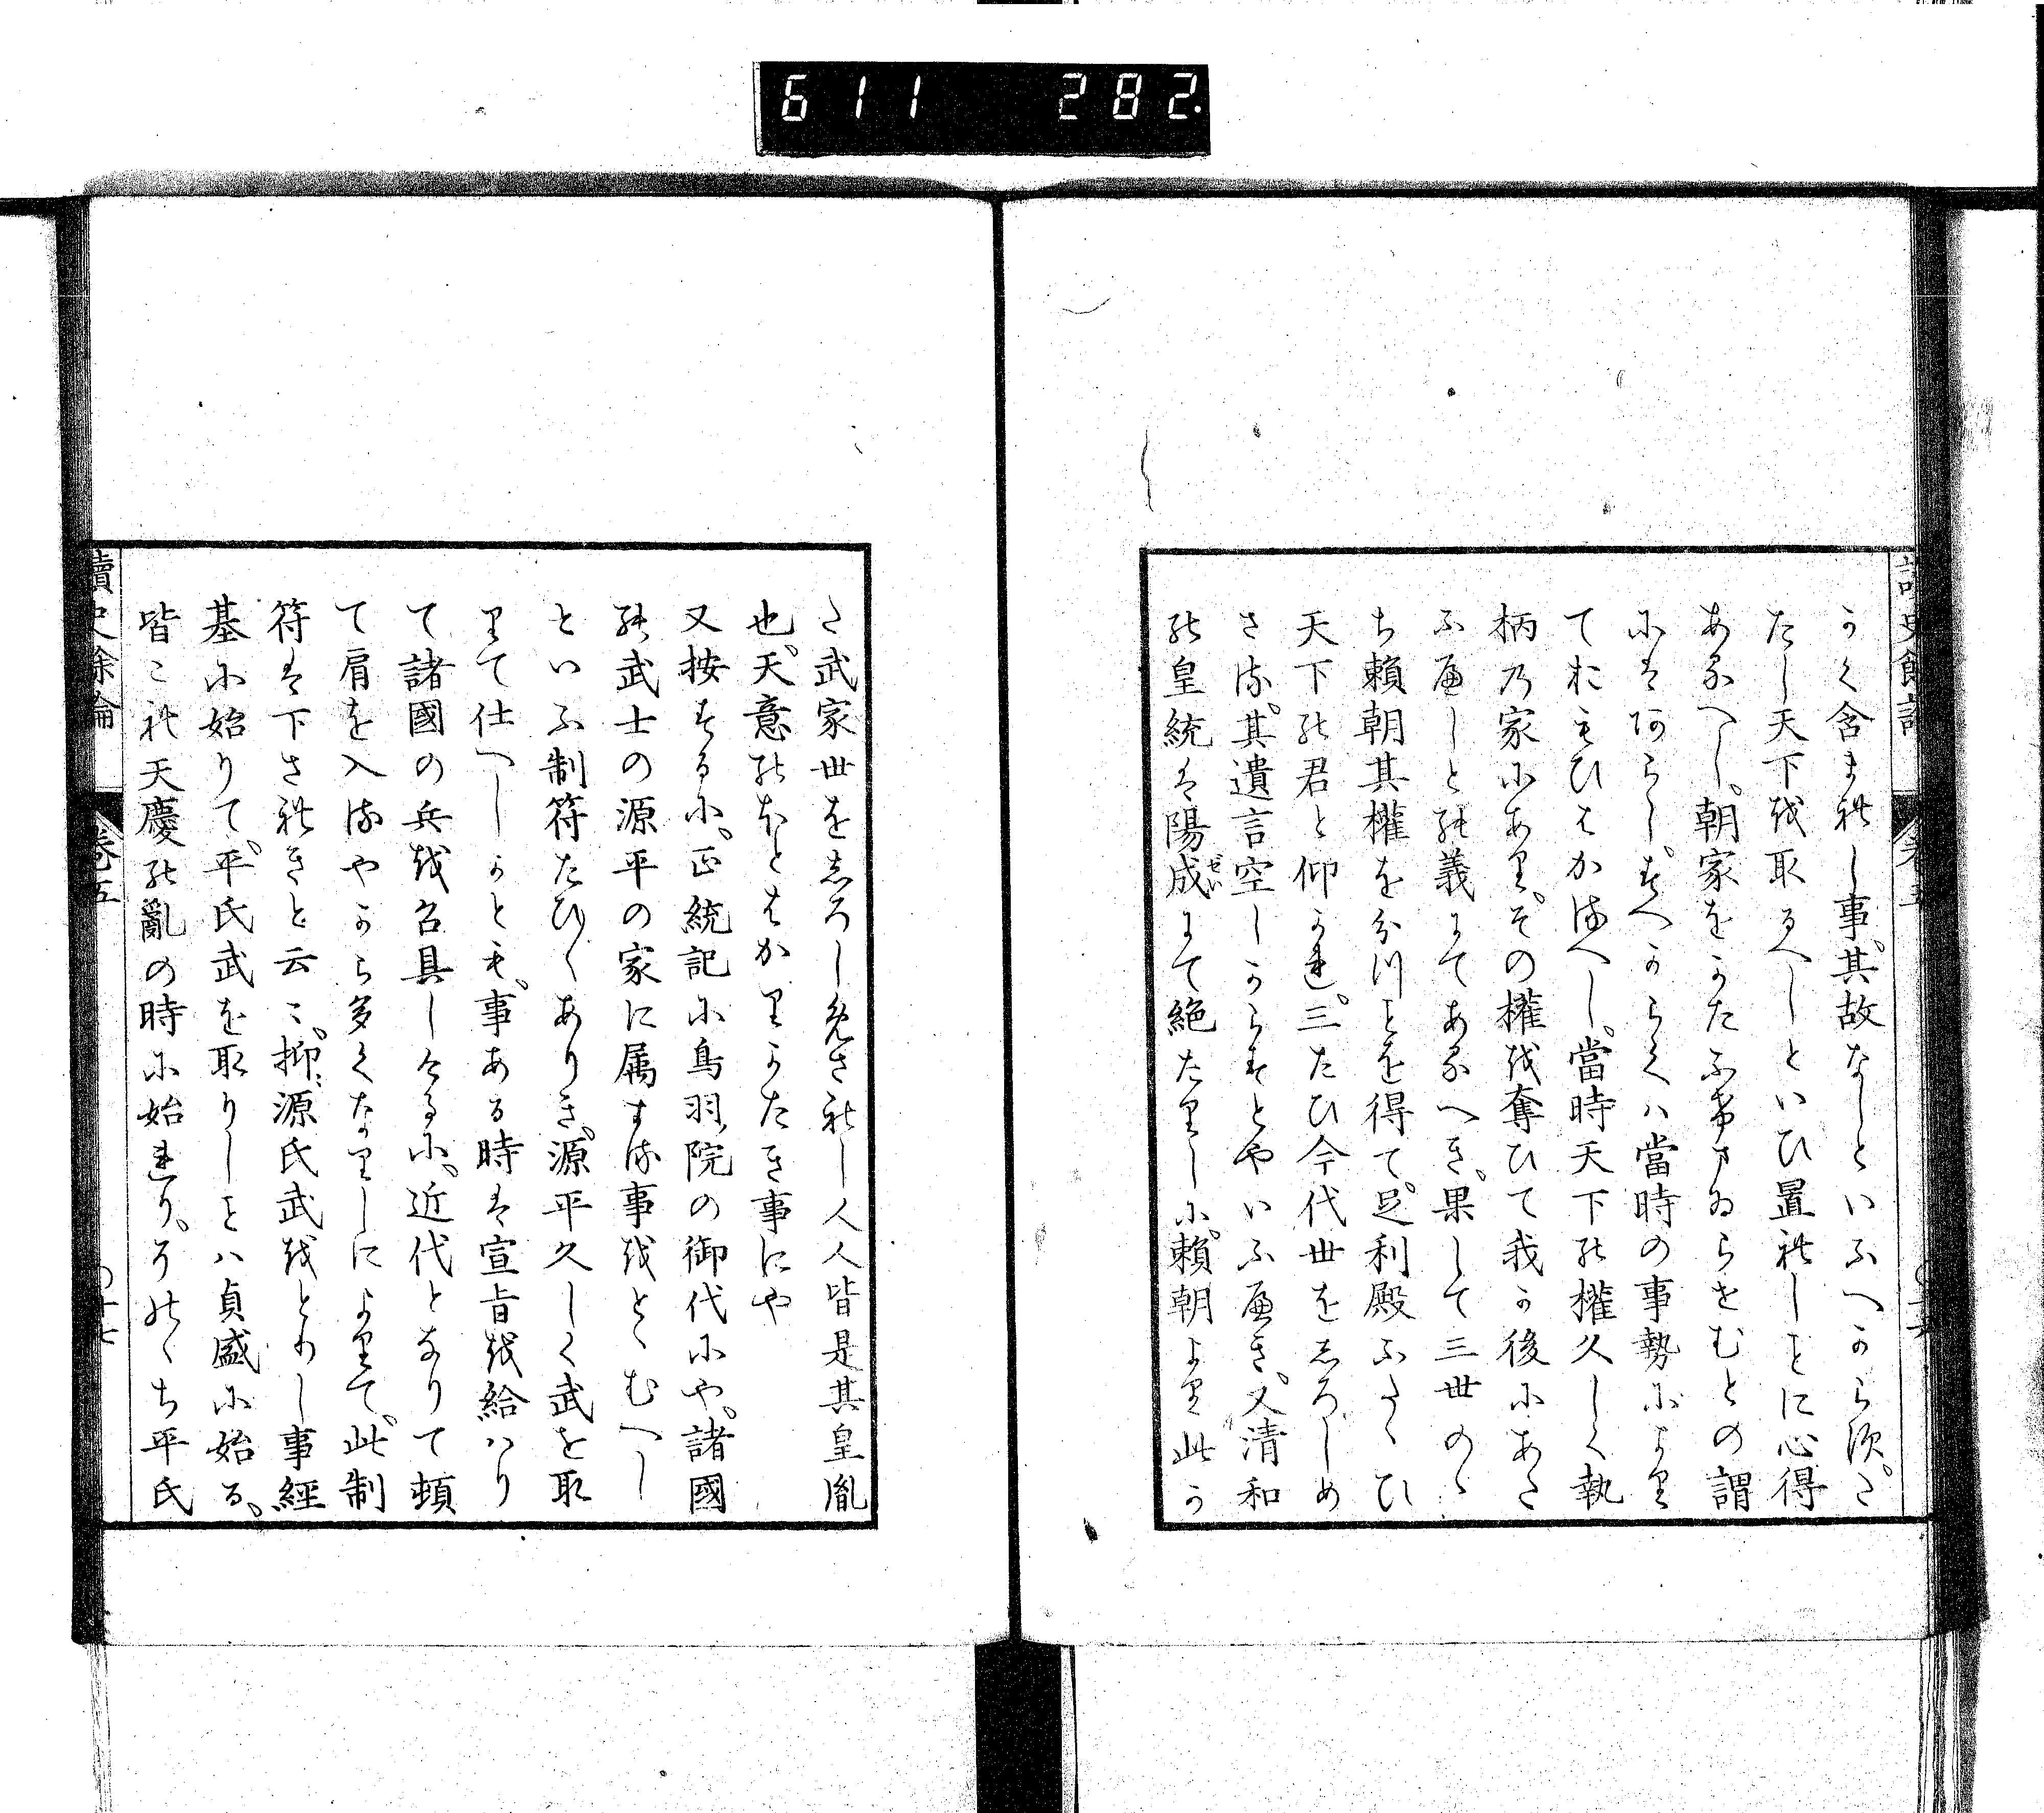 611 282
讀史餘論 卷五
かく含まれし事。其故なしといふへからす。さ
たし天下を取るへしといひ置れしをに心得
あるへし。朝家をかたふけまゐらせむとの謂
にはあらし。すへからくハ當時の事勢によりて
ておもひはかるへし。當時天下の權久しく執
柄の家にあり。その權を奪ひて我か後にあた
ふへしとの義にてあるへき。果して三世のゝ
ち賴朝其權を分川とを得て。足利殿ふたゝひ
天下の君と仰かれ。三たひ今代世をしろしめ
さる。其遺言空しからすとやいふへき。又清和
の皇統は陽成にて絶たりしに。賴朝より此か
た武家世をしろしめされし人人皆是其皇胤
也。天意のほとはかりかたき事にや
又按するに。正統記に鳥羽院の御代にや。諸國
の武士の源平の家に属する事をとゝむへし
といふ制符たひ〱ありき。源平久しく武を取
りて仕へしかとも。事ある時は宣旨を給ハり
て諸國の兵を召具しけるに。近代となりて頓
て肩を入るやから多くなりしによりて。此制
符は下されきと云云。抑源氏武をとりし事經
基に始りて。平氏武を取りしをハ貞盛に始る。
皆これ天慶の亂の時に始れり。そのゝち平氏
讀史餘論 卷五 〇十七